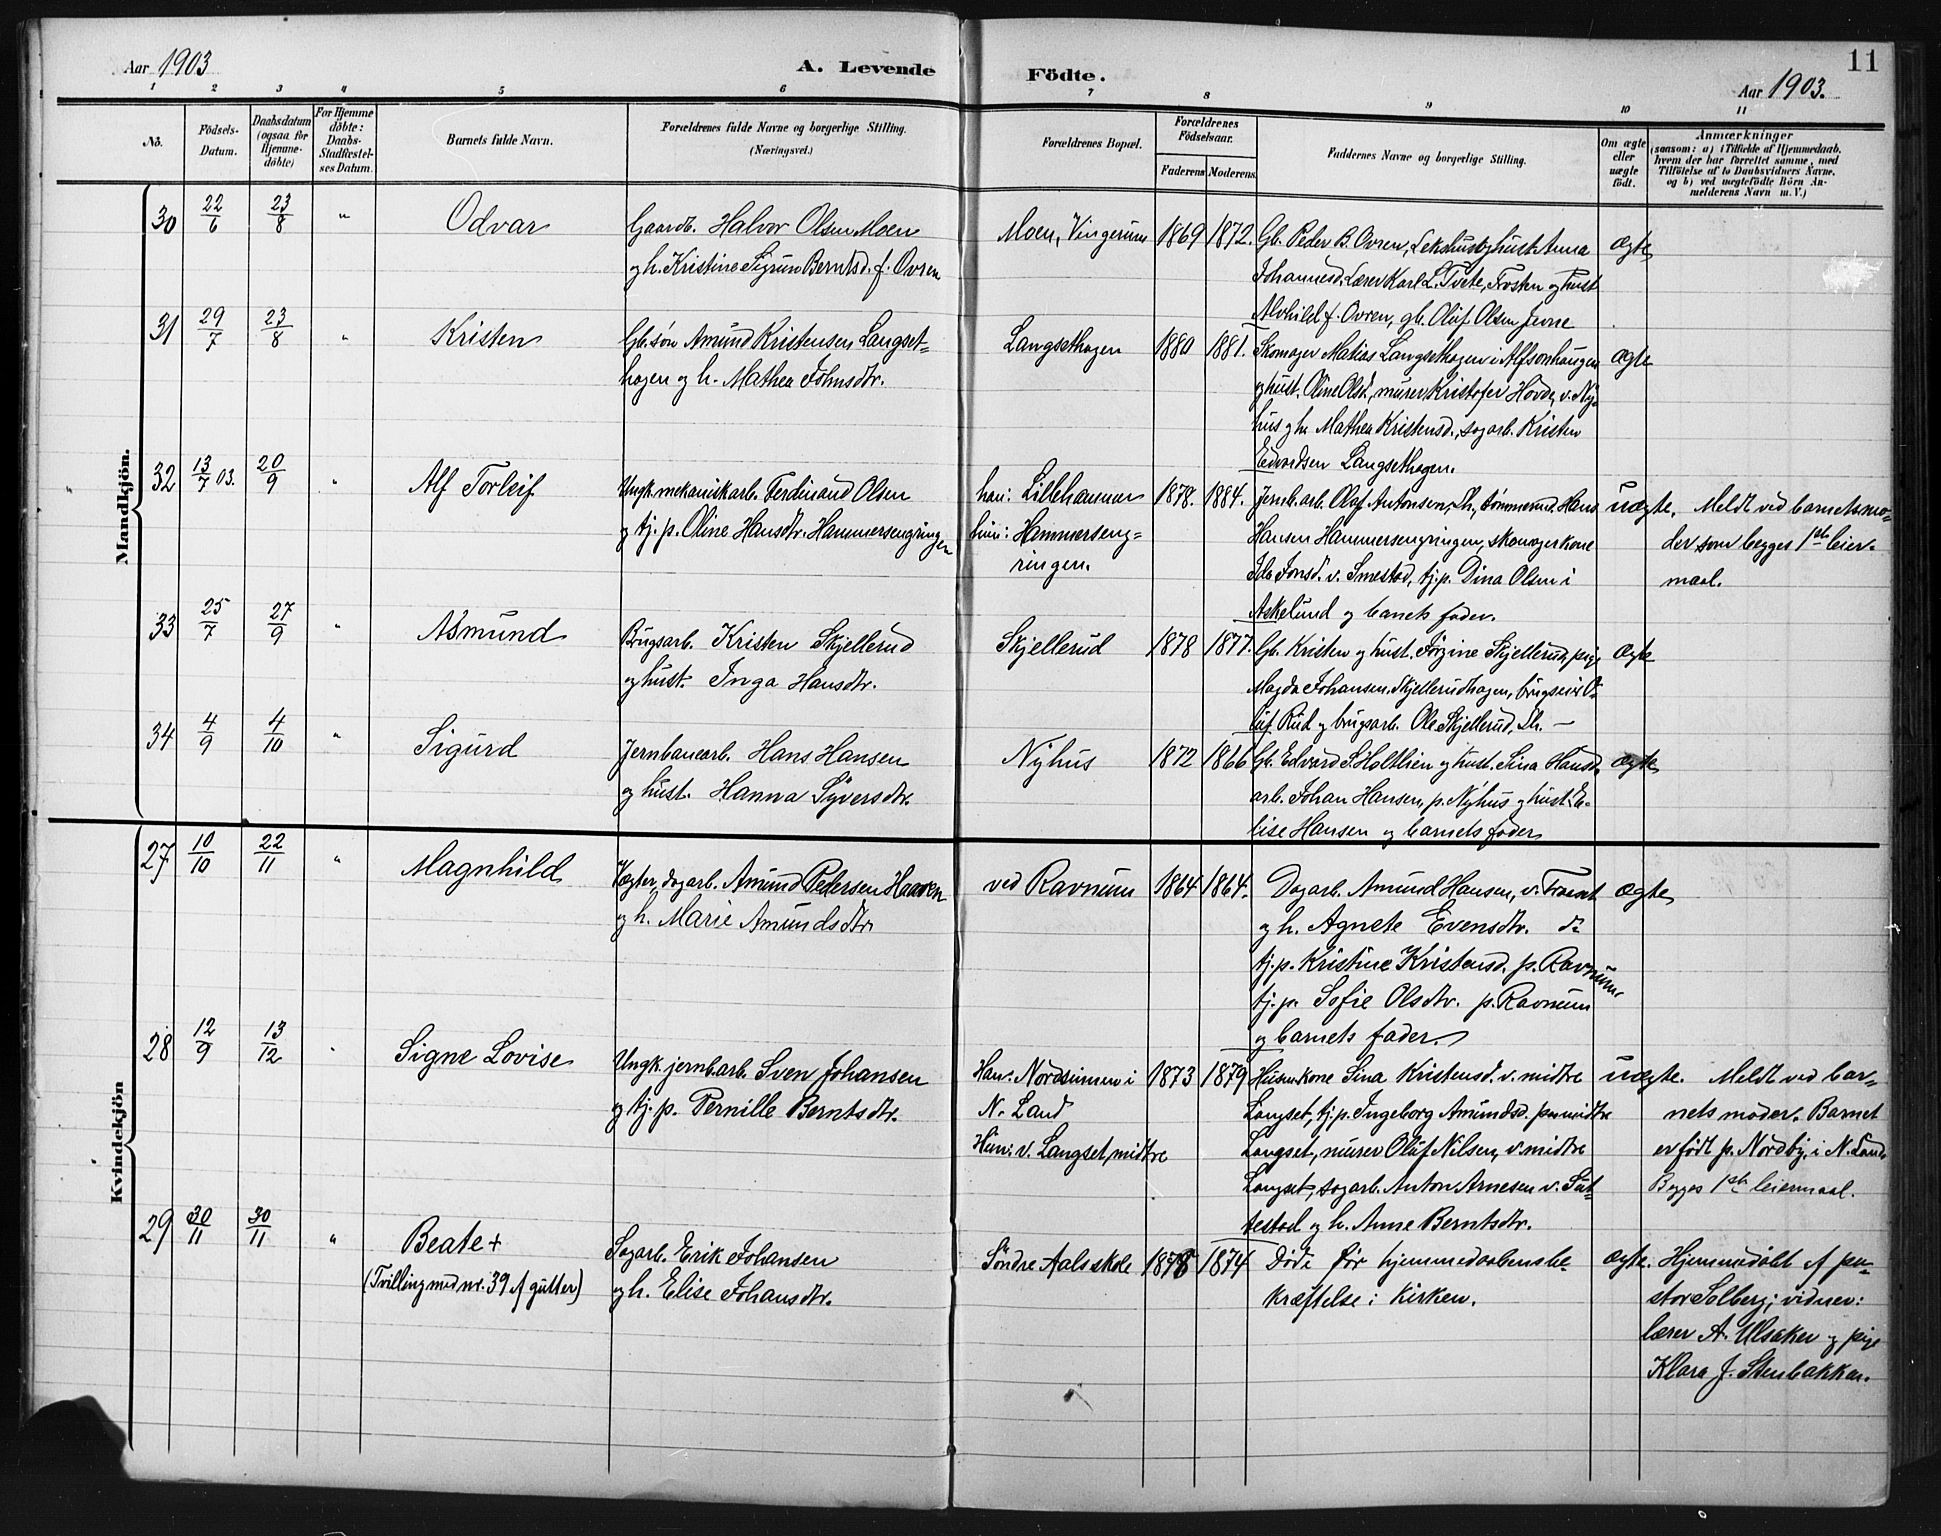 Aar 1903
A. Levende Födte.
11
Aar 1903.
1 2 3 4 5 6 7 8 9 10 11
No.
Födsels-
Datum.
Daabsdatum
(ogsaa för
Hjemme-
döbte)
For Hjemme
döbte:
Daabs-
Stadfæstel-
ses Datum.
Barnets fulde Navn.
Forældrenes fulde Navne og borgerlige Stilling.
(Næringsvei.)
Forældrenes Bopæl.
Forældrenes
Födselsaar.
Faderens Moderens
Faddernes Navne og borgerlige Stilling.
Om ægte
eller
uægte
født.
Anmærkninger
(saasom: a) i Tilfælde af Hjemmedaab,
hvem der har forrettet samme, med
Tilföielse af to Daabsvidners Navne,
og b) ved uægtefödte Börn An-
melderens Navn m. V.)
Mandkjön.
30 22/6 23/8 " Odvar
Gaardb. Halvor Olsen Moen
og h. Kristine Sigrun Berntsd. f. Ovren
Moen, Vingerum 1869 1872.
Gb. Peder B. Ovren, Lekshus og hust. Anna
Johannesd. Lærer Karl L. Tvete, Frosten og hust
Alvhild f. Ovren, gb. Oluf Olsen Jevne
ægte
31 29/7 23/8 " Kristen
Gb.søn Amund Kristensen Langset-
hagen og h. Mathea Johnsdtr.
Langsethagen 1880 1881.
Skomager Matias Langsethagen i Alfsonhaugen
og hust. Oline Olsd., murer Kristofer Hovde, v. Ny-
hus og h. Mathea Kristensd., sagarb. Kristen
Edvardsen Langsethagen.
ægte
32 13/7 03. 20/9 " Alf Torleif
Ungk. mekanisk arb. Ferdinand Olsen
og tj. p. Oline Hansdtr. Hammersengringen
han: Lillehammer
hun: Hammerseng-
ringen.
1878. 1884.
Jernb.arb. Olaf Antonsen, Lh., tømmerm. Hans
Hansen Hammersengringen, skomagerkone
Ida Jonsd. v. Smestad, tj.p. Dina Olsen i
Askelund og barnets fader.
uægte.
Meldt ved barnets mo-
der som begges 1ste leier-
maal.
33 25/7 27/9 " Asmund
Brugsarb. Kristen Skjellerud
og hust. Inga Hansdtr.
Skjellerud 1878 1877.
Gb. Kristen og hust. Jørgine Skjellerud, pige
Magda Johansen Skjellerudhagen, brugseier O-
luf Rud og brugsarb. Ole Skjellerud, Lh. —
ægte
34 4/9 4/10 " Sigurd
Jernbanearb. Hans Hansen
og hust. Hanna Syversdtr.
Nyhus 1872 1866
Gb. Edvard S. Holthien og hust. Sina Hansd.
arb. Johan Hansen, p. Nyhus og hust. E-
lise Hansen og barnets fader
ægte
Kvindekjön
27 10/10 22/11 " Magnhild
Vægter, dagarb. Amund Pedersen Haaven
og h. Marie Amundsdtr.
ved Ravnum 1864 1864.
Dagarb. Amund Hansen, v.
og h. Agnete Evensdtr. do
tj.p. Kristine Kristensd. p. Ravnum
tj. p. Sofie Olsdtr. p. Ravnum
og barnets fader.
ægte
28 12/9 13/12 " Signe Lovise
Ungk. jernb.arb. Sven Johansen
og tj. p. Pernille Berntsdtr.
Han: Nordsinnen i
N. Land
Hun: v. Langset, midtre
1873 1879
Husm.kone Sina Kristensd. v. midtre
Langset, tj.p. Ingeborg Amundsd. p. midtre
Langset, murer Oluf Nilsen, v. midtre
Langset, sagarb. Anton Arnesen v. Sut-
testad og h. Anne Berntsdtr.
uægte.
Meldt ved bar-
nets moder. Barnet
er født p. Nordby, i N. Land.
Begges 1ste leiermaal.
29 30/11 30/11 " Beate +
(Tvilling med nr. 39 af gutter)
Sagarb. Erik Johansen
og h. Elise Johansdtr.
Söndre Aals skole 1878 1874
Död før hjemmedaabens be-
kræftelse i kirken.
ægte.
Hjemmedøbt af pa-
stor Solberg; vidner:
lærer A. Ulsaker og pige
Klara J. Stenbakken.